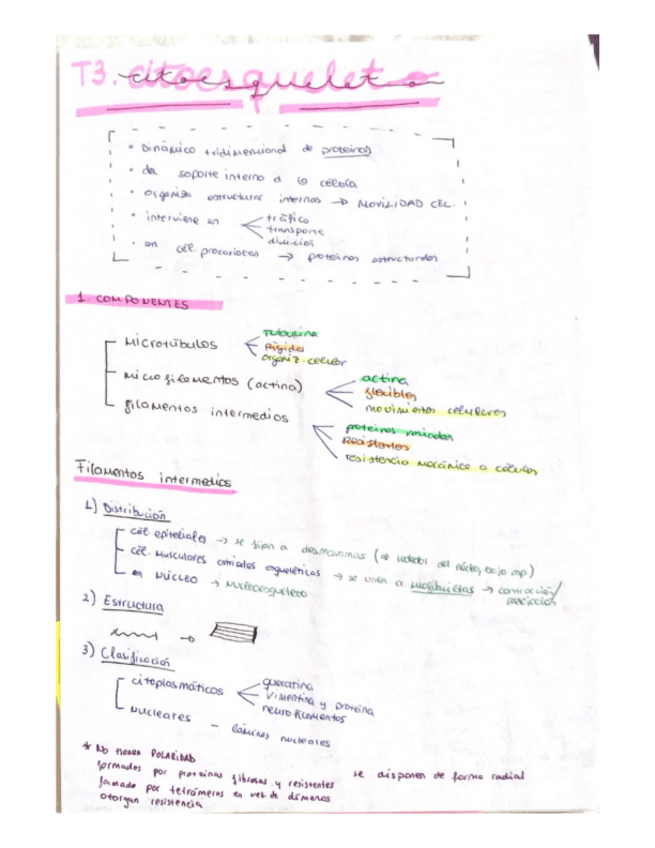 T3. citoesqueleto
• Dinámico tridimensional de proteínas
• da soporte interno a la célula
• organiza estructuras internas → MOVILIDAD CEL.
• interviene en
tráfico
transporte
división
• en cél. procariotas → proteínas estructurales
1. COMPONENTES
Microtúbulos
Tubulina
Rígidos
organiz. celular
microfilamentos (actina)
actina
flexibles
movimientos celulares
filamentos intermedios
proteínas variadas
Resistentes
resistencia mecánica a células
Filamentos intermedios
1) Distribución
cél. epiteliales → se fijan a desmosomas (alrededor del núcleo, bajo mp)
cél. Musculares estriadas esqueléticas → se unen a miofibrillas → contracción/
en NÚCLEO → Nucleoesqueleto
2) Estructura
3) Clasificación
citoplasmáticos
queratina
vimentina y proteína
neurofilamentos
Nucleares – láminas nucleares
* No tienen POLARIDAD
formados por proteínas fibrosas y resistentes se disponen de forma radial
formado por tetrámeros en vez de dímeros
otorgan resistencia